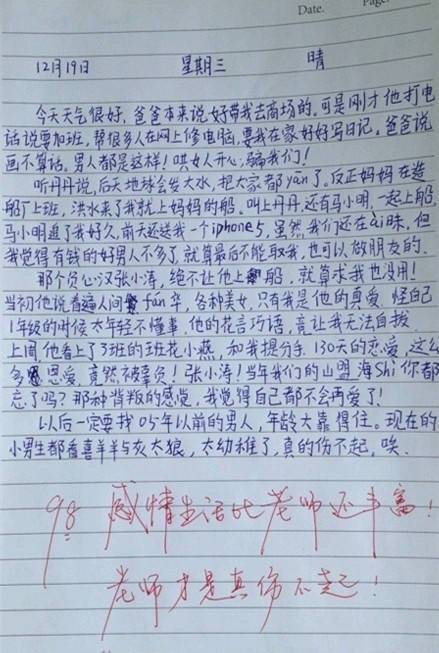 Date.
Page.
12月19日 星期三 晴
今天天气很好，爸爸本来说好带我去商场的。可是刚才他打电
话说要加班，帮很多人在网上修电脑，要我在家好好写日记。爸爸说
画不算话。男人都是这样！哄女人开心，骗我们！
听丹丹说，后天地球会发大水，把大家都yān了。反正妈妈在造
船厂上班，洪水来了我就上妈妈的船。叫上丹丹还有马小明，一起上船，
马小明追了我好久，前天还送我一个iphone5，虽然我们还在ài昧，但
我觉得有钱的好男人不多了，就算最后不能取我，也可以做朋友的。
那个负心汉张小涛，绝不让他上船，就算求我也没用！
当初他说看遍人间fán华，各种美女，只有我是他的真爱，怪自己
1年级的时候太年轻不懂事，他的花言巧语，竟让我无法自拔。
上周他看上了3班的班花小燕，和我提分手。130天的恋爱，这么
多恩爱，竟然被辜负！张小涛！当年我们的山盟海shi你都
忘了吗？那种背叛的感觉，我觉得自己都不会再爱了！
以后一定要找05年以前的男人，年龄大靠得住。现在的
小男生都看喜羊羊与灰太狼，太幼稚了，真的伤不起，唉。
98 感情生活比老师还丰富！
老师才是真伤不起！